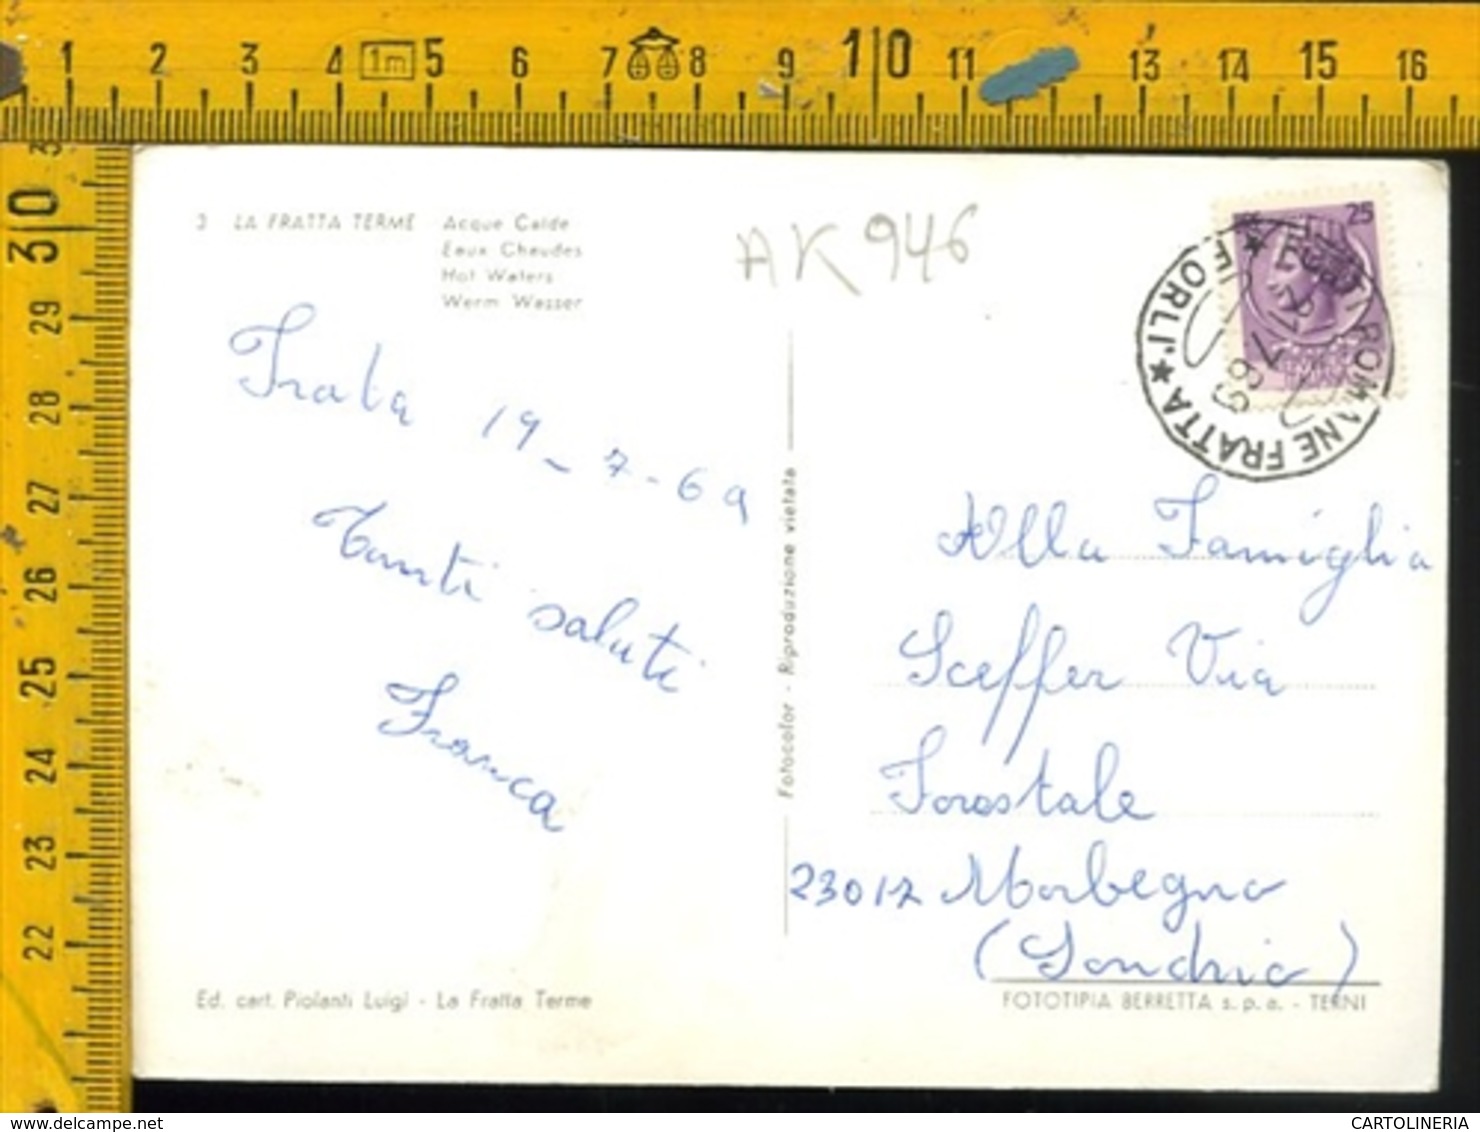 1 2 3 4 1m 5 6 7 8 9 10 11 13 14 15 16
30
29
28
27
26
25
24
23
22
3 LA FRATTA TERME Acque Calde
Eaux Chaudes
Hot Waters
Werm Wasser
AK 946
25
FRATTA ★ FORLI' ★
Frata 19-7-69
Tanti saluti
Franca
Fotocolor - Riproduzione vietata
Alla Famiglia
Sceffer Via
Forestale
23017 Morbegno
(Sondrio)
Ed. cart. Piolanti Luigi - La Fratta Terme
FOTOTIPIA BERRETTA s.p.a. - TERNI
CARTOLINERIA